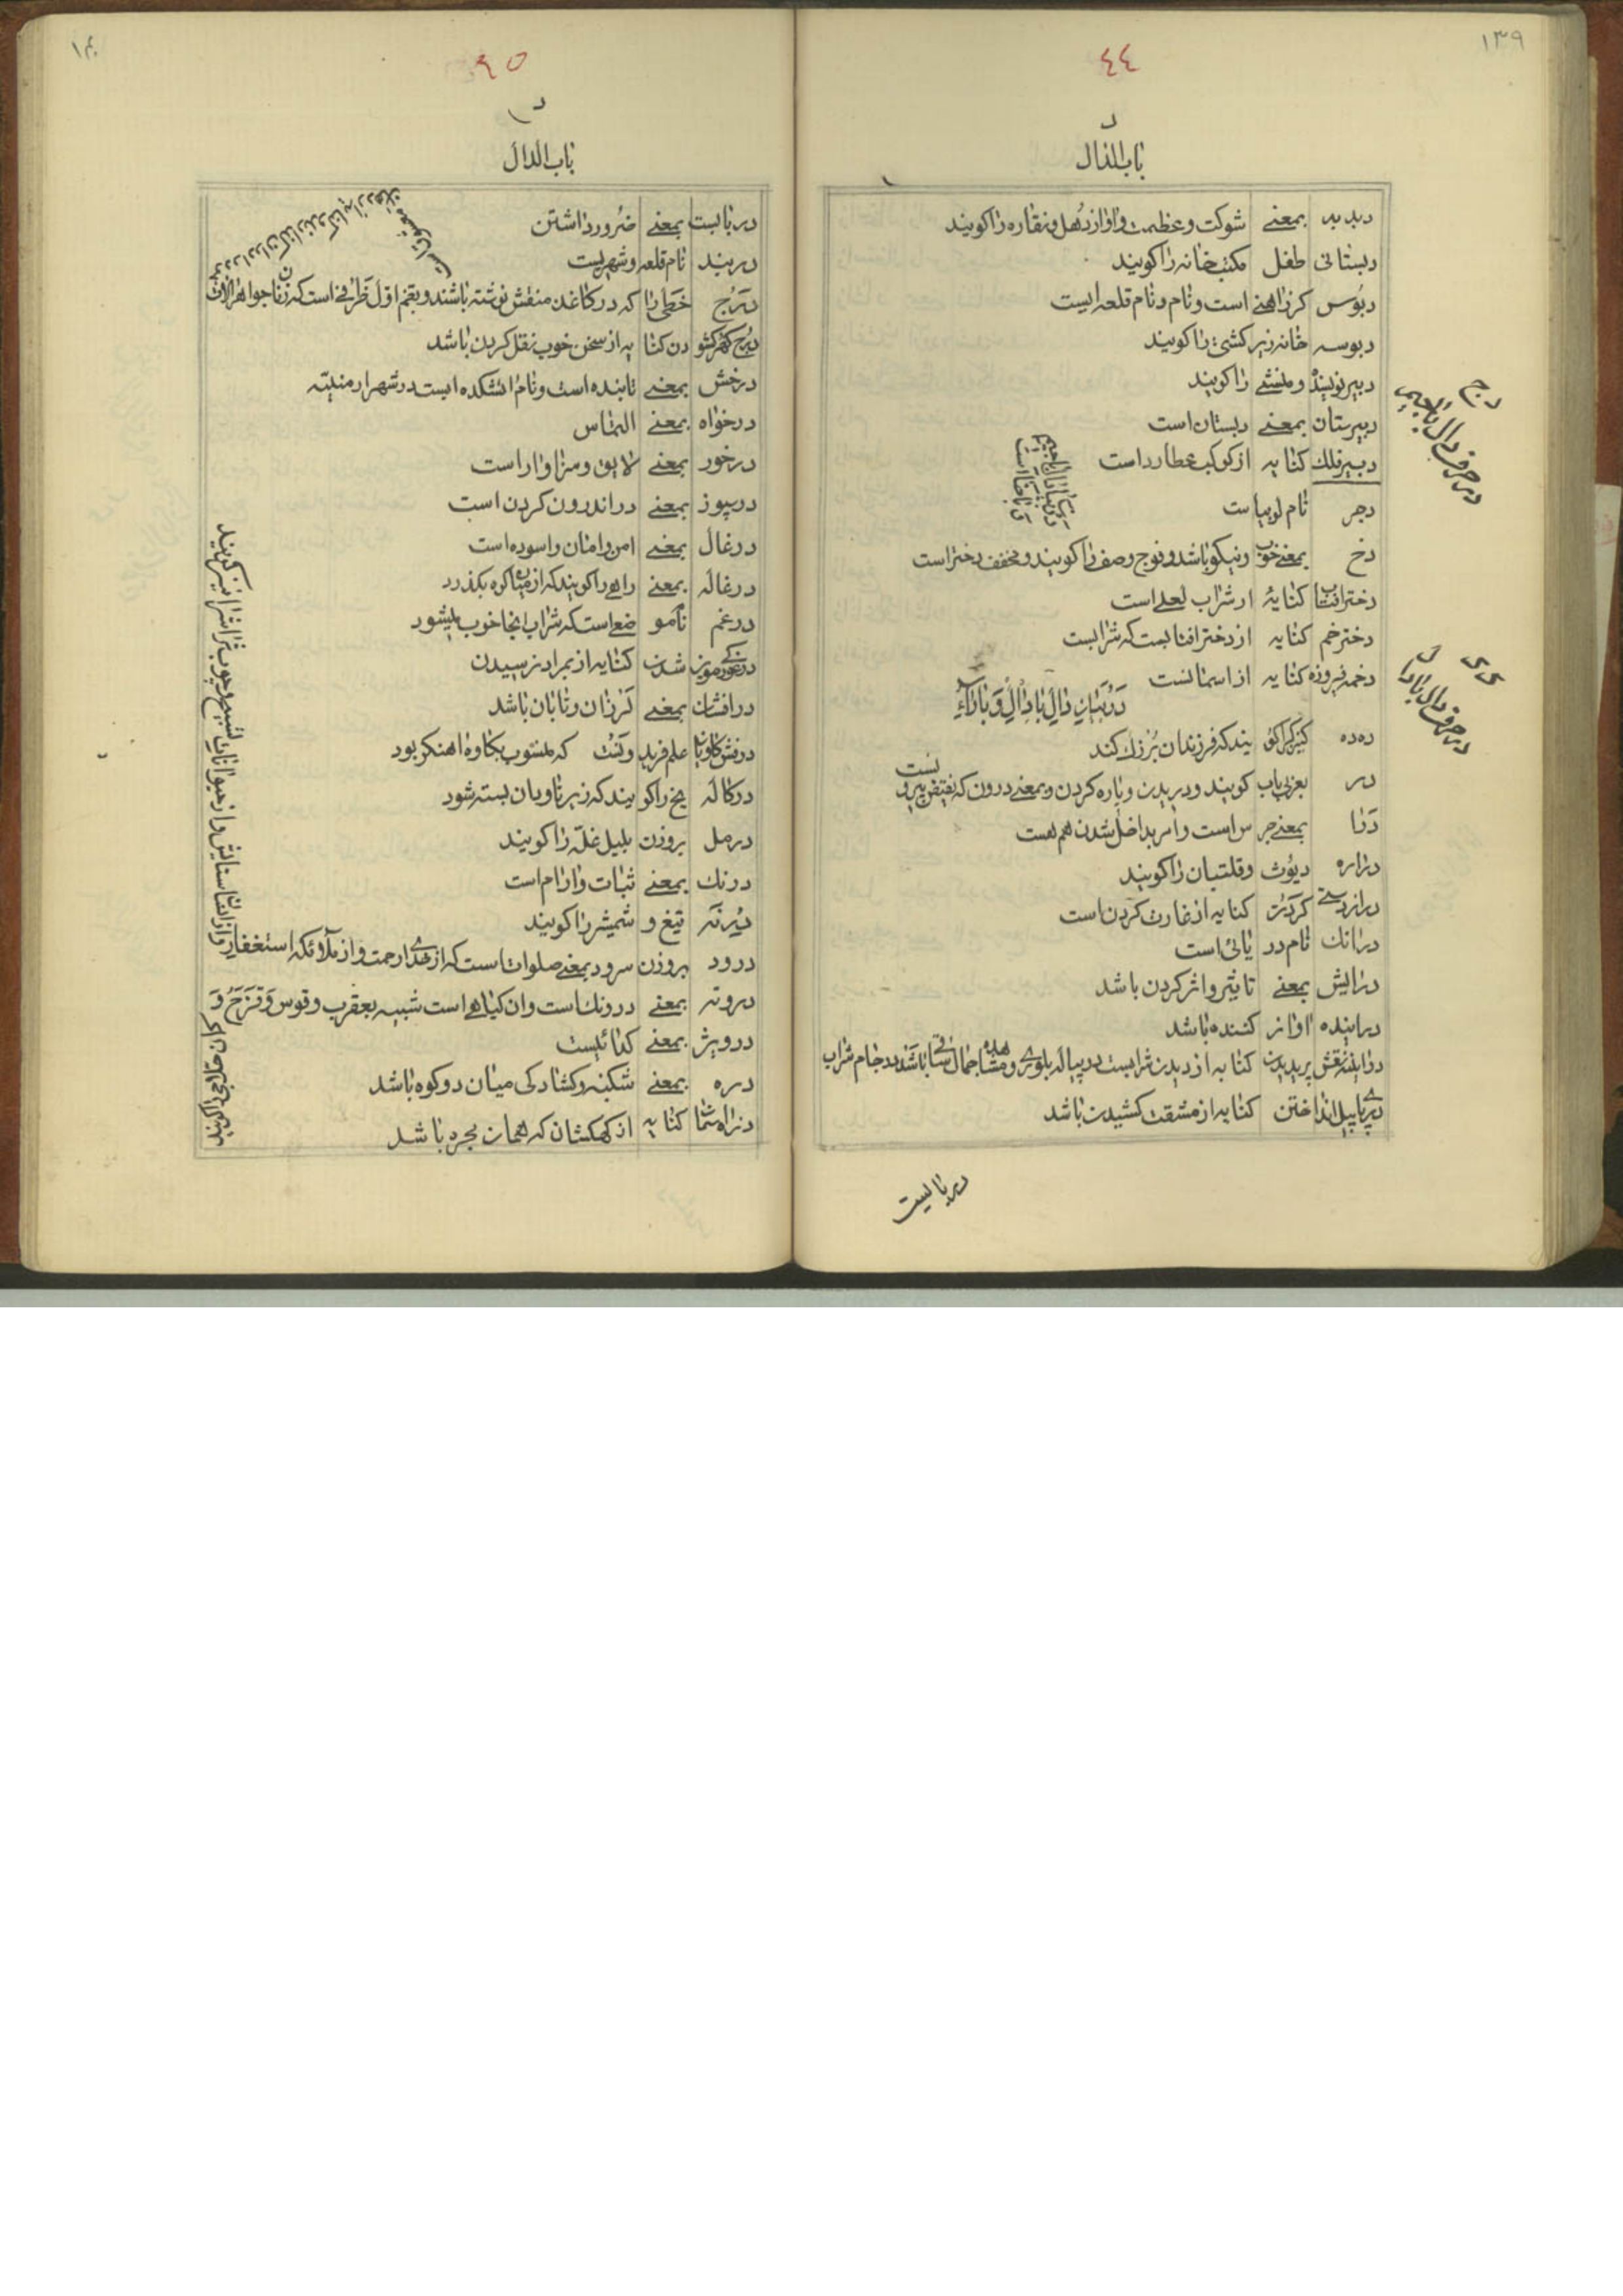 ١٣٩
٤٤
د
باب الدال
دبدبه بمعنی شوکت و عظمت و اواز دهل و نقاره را کویند
دبستانی طفل مکتب خانه را کویند
دبوس کرز اهنی است و نام و نام قلعه ایست
دبوسه خانه زیر کشتی را کویند
دبیر نویسنده و منشی را کویند
دبیرستان بمعنی دبستان است
دبیر فلك کنایه از کوکب عطارد است
دجر نام لوبیا ست
دخ بمعنی خوب و نیکو باشد و فوج و صف را کویند و مخفف دختر است
دختر افتاب کنایهٔ از شراب لعلی است
دختر خم کنایه از دختر افتابست که شرابست
دخمه فیروزه کنایه از اسمانست
در بیان دال با دال و با راء
دده کنیزکی را کویند که فرزندان بزرك کند
در بعربی باب کویند و دریدن و پاره کردن و بمعنی درون که نقیض بیرونست
درا بمعنی جرس است و امر بداخل شدن هم هست
دراره دیوث و قلتبان را کویند
دراز دستی کردن کنایه از غارت کردن است
درانك نام دریائی است
درایش بمعنی تاثیر و اثر کردن باشد
دراینده اواز کننده باشد
در اینه نقش پری دیدن کنایه از دیدن شرابست در پیاله بلوری و مشاهده جمال ساقی باشد در جام شراب
در پای پیل انداختن کنایه از مشقت کشیدن باشد
دربایست
دج
در حرف دال با جیم
دد
در حرف دال با دال
١٤٠
٤٥
د
باب الدال
دربایست بمعنی ضرور داشتن
دربند نام قلعه و شهریست
درج خطی را که در کاغذ منقش نوشته باشند و بضم اول ظرفی است که زنان جواهر الات
درج کهر کشودن کنایه از سخن خوب نقل کردن باشد
درخش بمعنی تابنده است و نام اتشکده ایست در شهر ارمنیه
درخواه بمعنی التماس
درخور بمعنی لایق و سزاوار است
درسپوز بمعنی در اندرون کردن است
درغال بمعنی امن و امان و اسوده است
درغاله بمعنی راهی را کویند که از میان کوه بکذرد
درغم نام موضعی است که شراب انجا خوب میشود
در غورکی مویز شدن کنایه از بمراد نرسیدن
درافشان بمعنی لرزان و تابان باشد
درفش کاویان علم فریدونست که منسوب بکاوه اهنکر بود
درکاله یخ را کویند که زیر ناودان بسته شود
درمل بروزن بلبل غله را کویند
درنك بمعنی ثبات و ارام است
درنه تیغ و شمشیر را کویند
درود بروزن سرود بمعنی صلوات است که از خدای رحمت و از ملائکه استغفار
و از انسان ستایش و از حیوانات تسبیح و چوب تراش را نیز کویند
درونه بمعنی درونك است و ان کیاهی است شبیه بعقرب و قوس و قزح و
درویژ بمعنی کدائیست
دره بمعنی شکنبه و کشادکی میان دو کوه باشد
درراه شما کنایه از کهکشان که همان مجره باشد